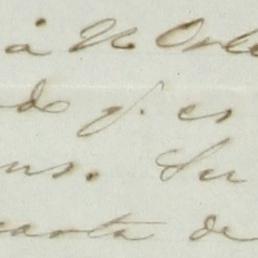 á N Orle
do q. es
us. Su
carta de